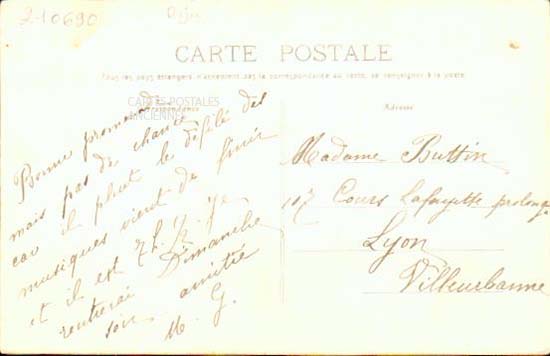 2-10690
CARTE POSTALE
Tous les pays étrangers n'acceptent pas la correspondance au verso, se renseigner à la poste.
CARTES POSTALES
ANCIENNES
Correspondance
Adresse
Bonne promenade
mais pas de chance
car il pleut le défilé des
musiques vient de finir
et il est 7h ½ je
rentrerai Dimanche
soir amitié
M. G.
Madame Buttin
107 Cours Lafayette prolongé
Lyon
Villeurbanne